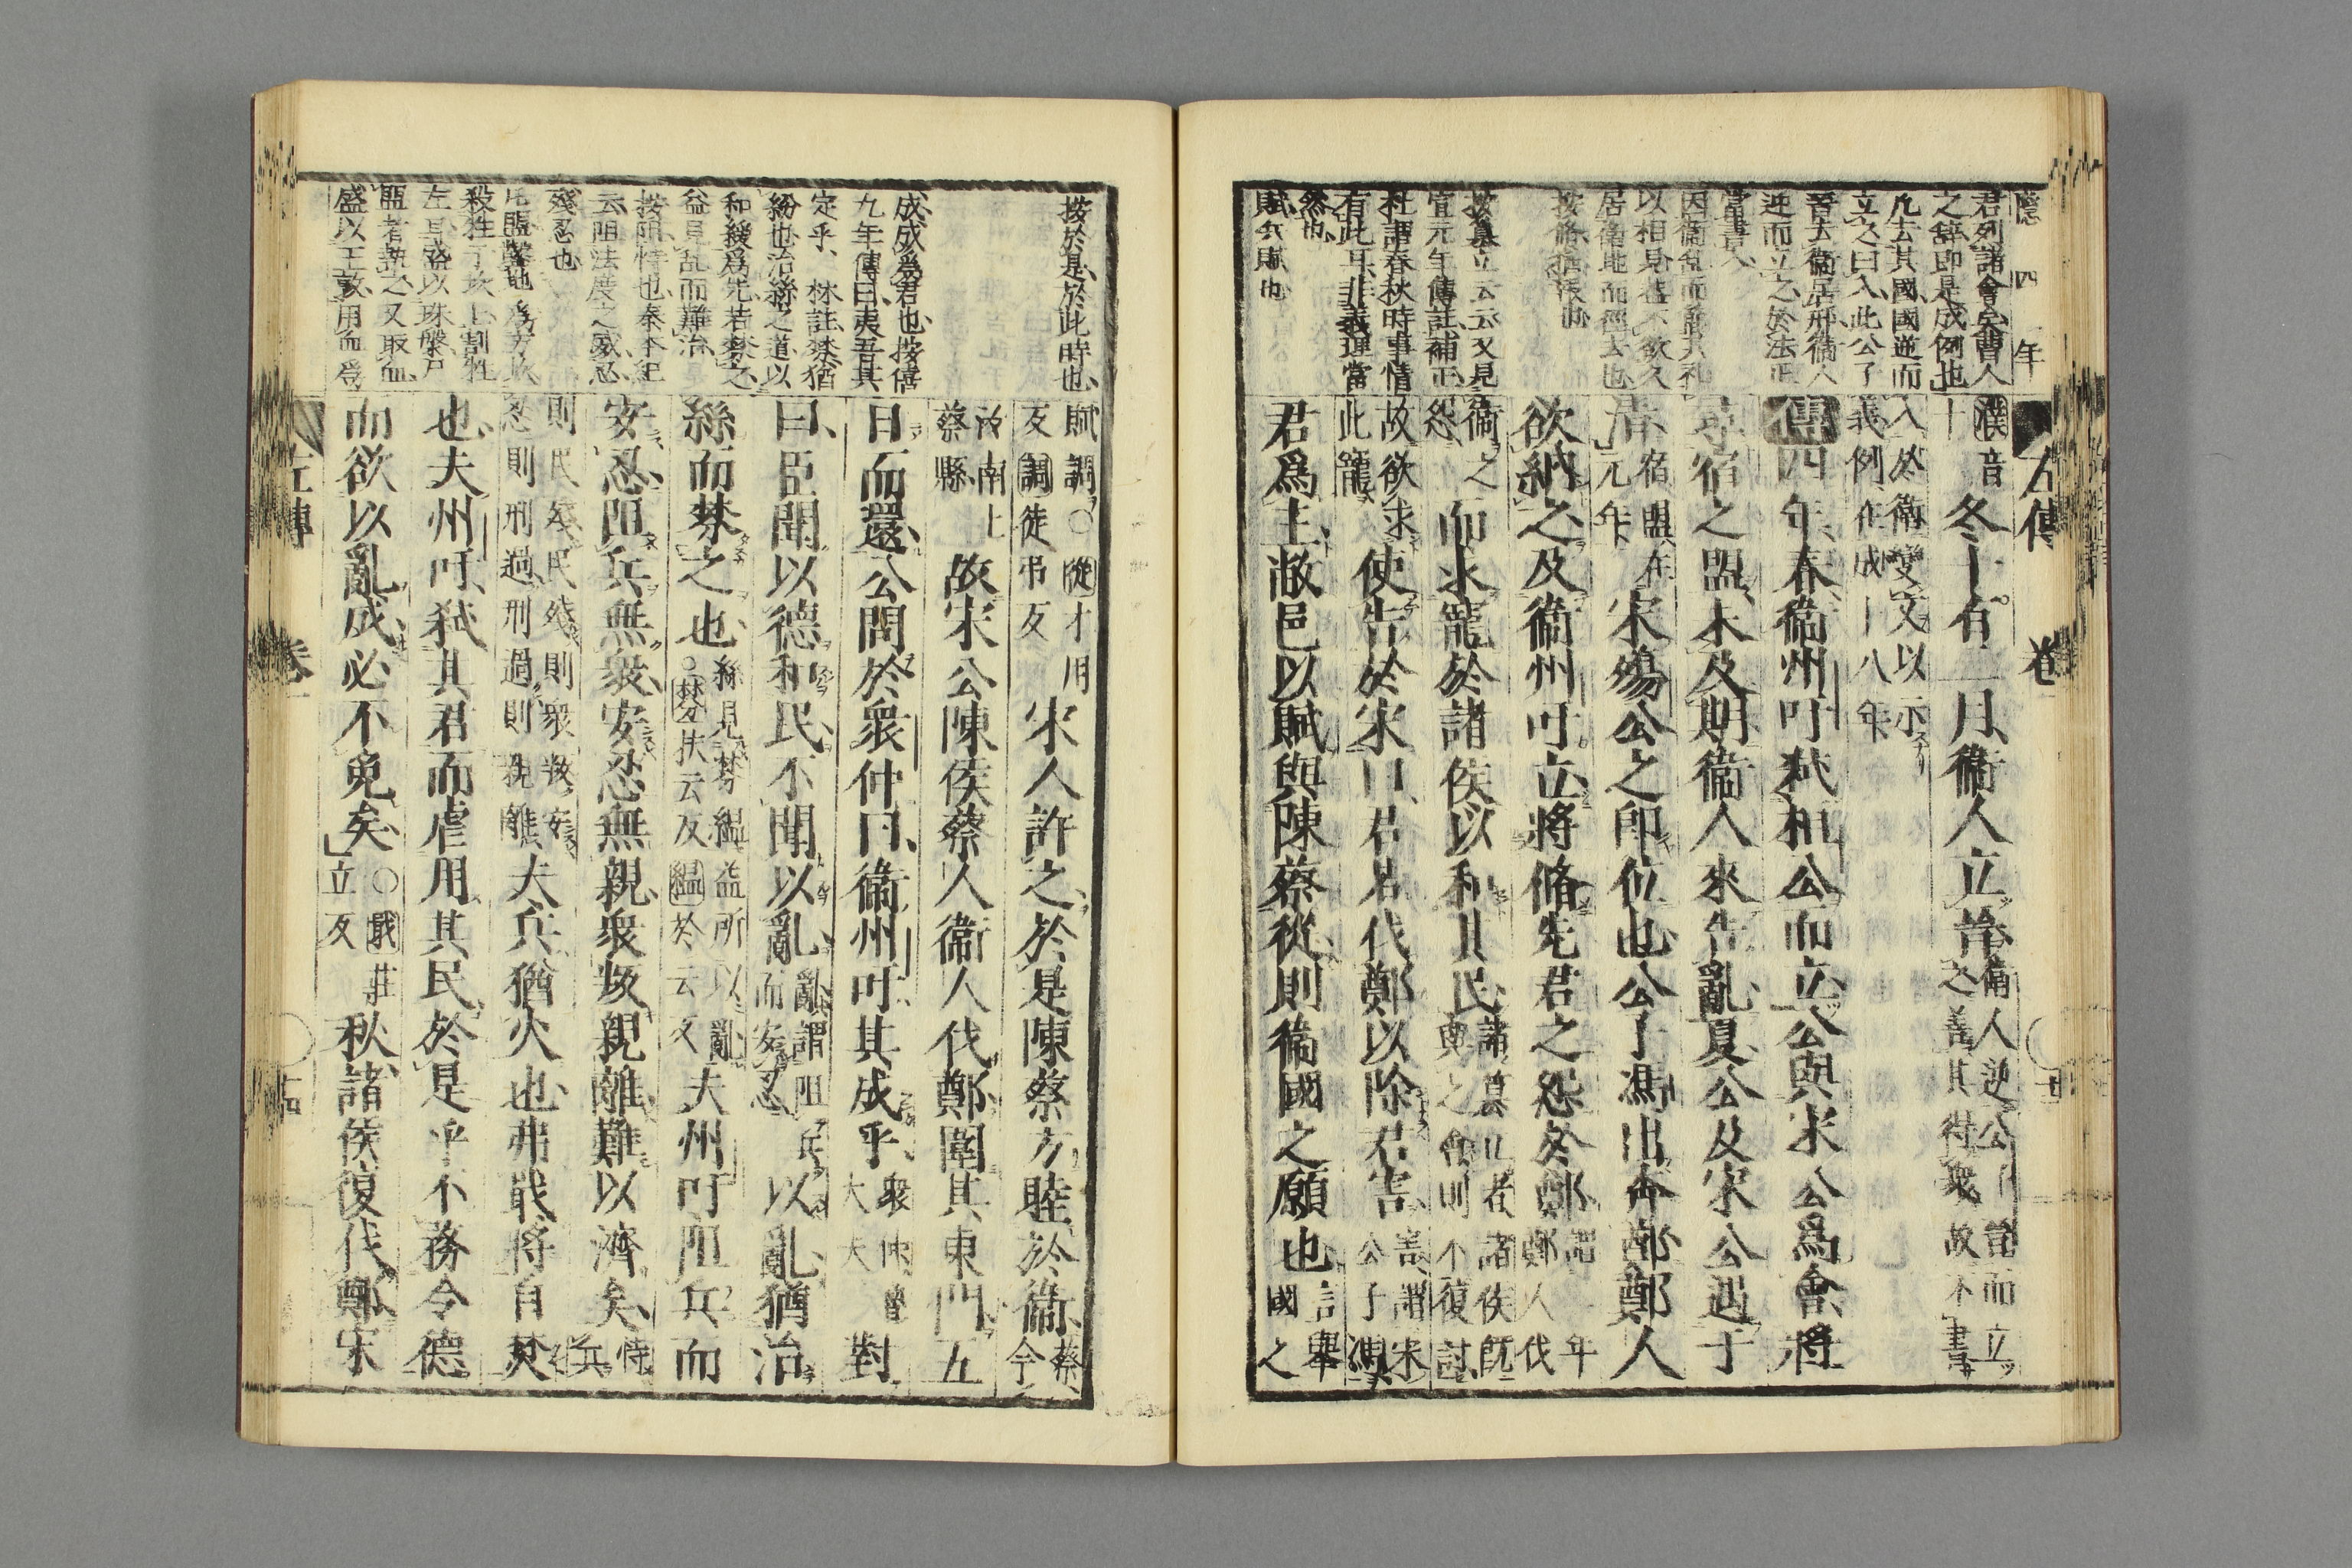 隱四年
左傳 卷一
君列諸會矣曹人
之辭即是成例也
凡去其國國逆而
立之曰入此公子
晋去衞居邢衞人
逆而立之於法正
當書入
因衞乱而
以相見 欲久
居衞地而徑去也
按脩猶
按纂立云云又見
宣元年傳註補正
杜謂春秋時事情
有此耳非義理當
然也
賦兵賦也
濮音
卜
冬十有二月衞人立晉
衞人逆公子晉而立
之善其得衆故不書
入於衞變文以示
義例在成十八年
傳四年春衞州吁弑桓公而立公與宋公爲會將
尋宿之盟未及期衞人來告亂夏公及宋公遇于
清
宿盟在
元年
宋殤公之卽位也公子馮出奔鄭鄭人
欲納之及衞州吁立將脩先君之怨於鄭
謂二年
鄭人伐
衞之
怨
而求寵於諸侯以和其民
諸簒立者諸侯旣
與之會則不復討
故欲求
此寵
使告於宋曰君若伐鄭以除君害
害謂宋
公子馮
君爲主敝邑以賦與陳蔡從則衞國之願也
言舉
國之
按於是於此時也
成成爲君也按僖
九年傳曰夷吾其
定乎 林註棼猶
紛也治絲之道以
和緩爲先若棼之
益見乱而難治
按阻恃也秦本紀
云阻法度之威忍
殘忍也
尾盟 也
殺牲于坎上割牲
左耳盛以珠槃尸
盟者執之又取血
盛以玉敦用而爲
賦調○從才用
反調徒弔反
宋人許之於是陳蔡方睦於衞
蔡
今
汝南上
蔡縣
故宋公陳侯蔡人衞人伐鄭圍其東門五
日而還公問於衆仲曰衞州吁其成乎
衆仲魯
大夫
對
曰臣聞以德和民不聞以亂
亂謂阻兵
而安忍
以亂猶治
絲而棼之也
絲見棼縕益所以亂
○棼扶云反縕於云反
夫州吁阻兵而
安忍阻兵無衆安忍無親衆叛親離難以濟矣
恃兵
則民殘民殘則衆叛安
忍則刑過刑過則親離
夫兵猶火也弗戢將自焚
也夫州吁弑其君而虐用其民於是乎不務令德
而欲以亂成必不免矣
○戢莊
立反
秋諸侯復伐鄭宋
左傳 卷一 十四